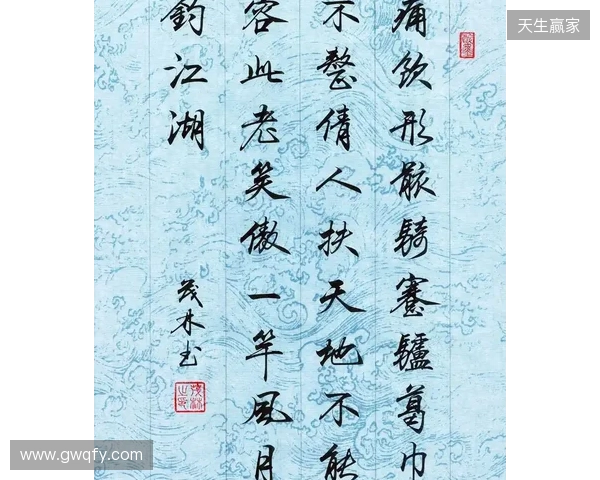 痛飲形骸騎蹇驢葛巾
不整倩人扶天地不能
容此老笑傲一竿風月
釣江湖
茂林书
天生赢家
www.gwqfy.com